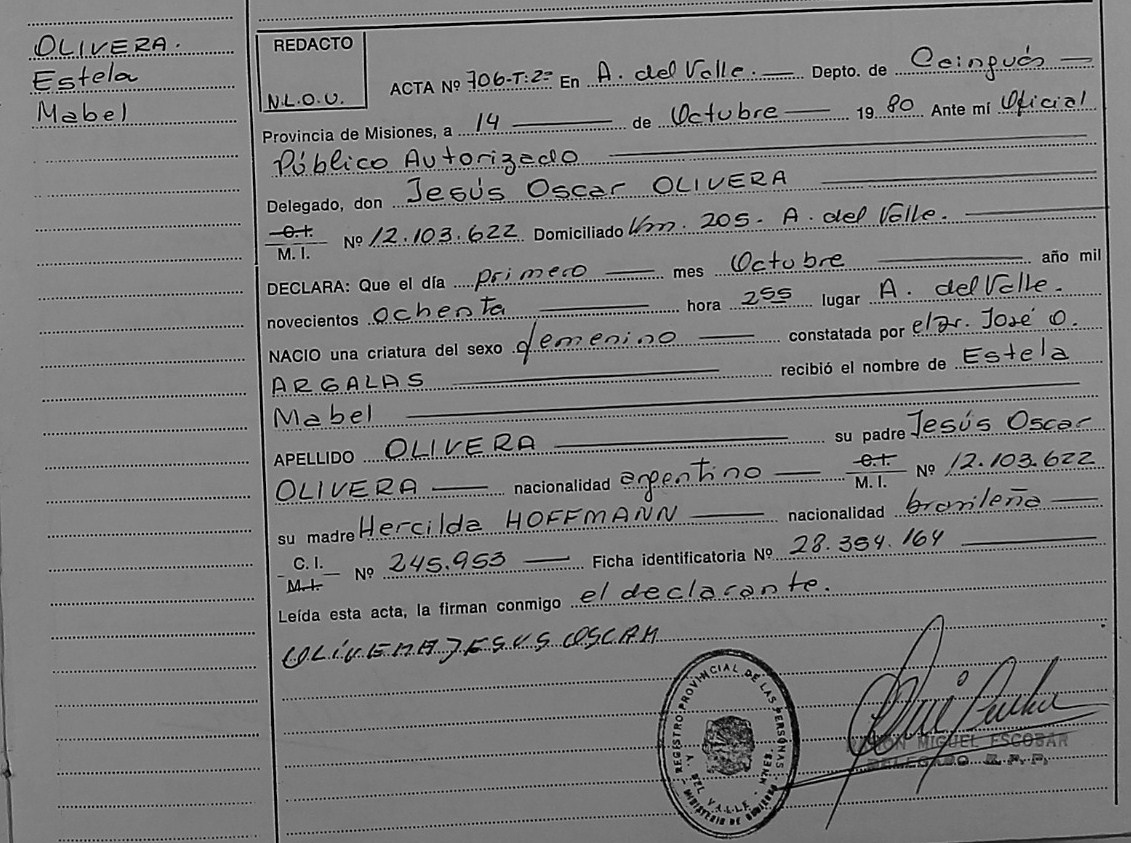 OLIVERA.
Estela
Mabel
REDACTO
N.L.O.U.
ACTA Nº 706-T:2= En A. del Valle. Depto. de Caingués
Provincia de Misiones, a 14 de Octubre 19 80 Ante mí Oficial
Público Autorizado
Delegado, don Jesús Oscar OLIVERA
C.I.
M. I. Nº 12.103.622 Domiciliado Km. 205- A. del Valle.
DECLARA: Que el día primero mes Octubre año mil
novecientos ochenta hora 255 lugar A. del Valle.
NACIO una criatura del sexo femenino constatada por el Dr. José O.
ARGALAS recibió el nombre de Estela
Mabel
APELLIDO OLIVERA su padre Jesús Oscar
OLIVERA nacionalidad argentino C.I. M. I. Nº 12.103.622
su madre Hercilda HOFFMANN nacionalidad brasileña
C. I. M.I. Nº 245.953 Ficha identificatoria Nº 28.354.164
Leída esta acta, la firman conmigo el declarante.
OLIVERA JESUS OSCAR
REGISTRO PROVINCIAL DE LAS PERSONAS
A. DEL VALLE - MNES.
MINISTERIO DE GOBIERNO
MIGUEL ESCOBAR
DELEGADO R.P.P.